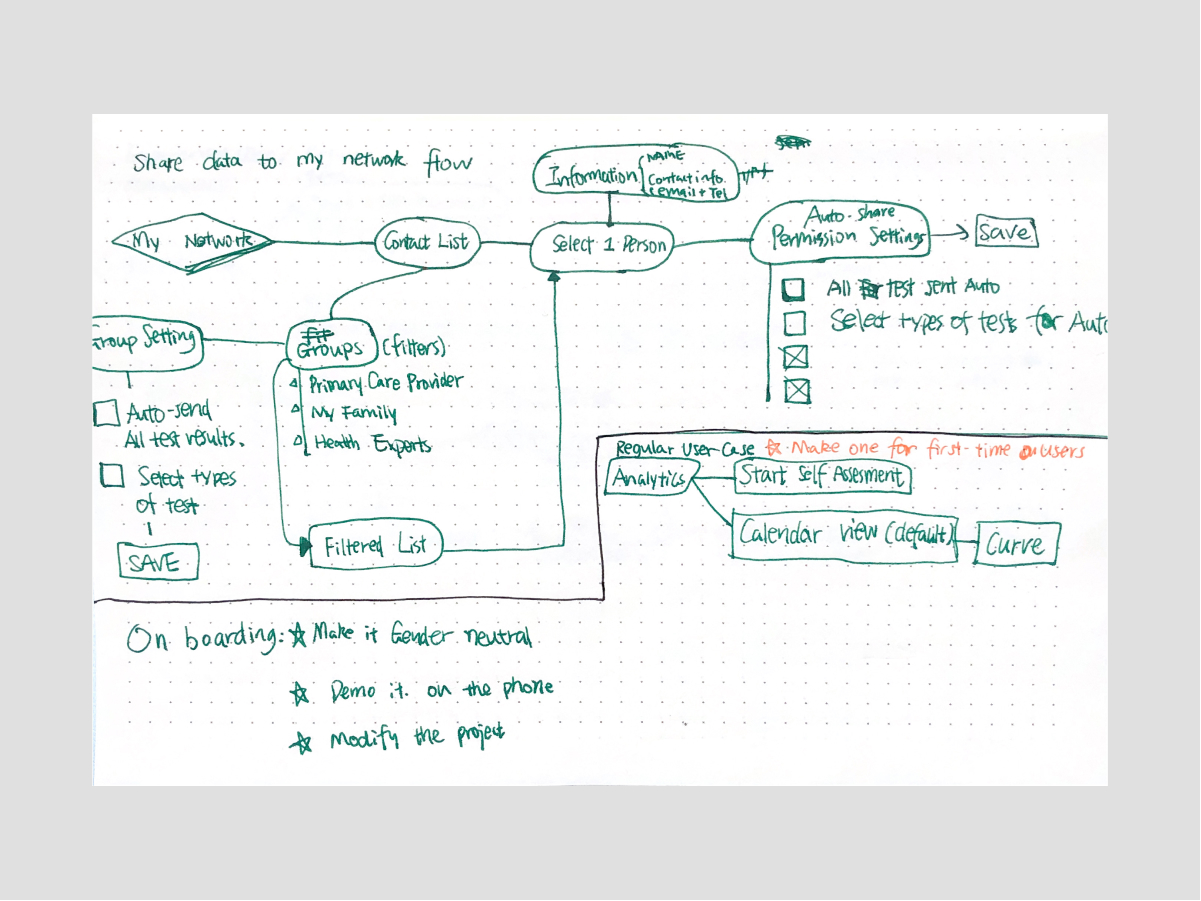 Share data to my network flow
Information
NAME
Contact info.
email + Tel
My Network
Contact List
Select 1 Person
Auto-share
Permission Settings
Save
All test sent Auto
Select types of tests for Auto
Group Setting
Groups (filters)
Primary Care Provider
My Family
Health Experts
Auto-send
All test results.
Select types
of test
SAVE
Filtered List
Regular User Case ☆ Make one for first-time users
Analytics
Start Self Assesment
Calendar view (default)
Curve
On boarding: ☆ Make it Gender neutral
☆ Demo it on the phone
☆ Modify the project